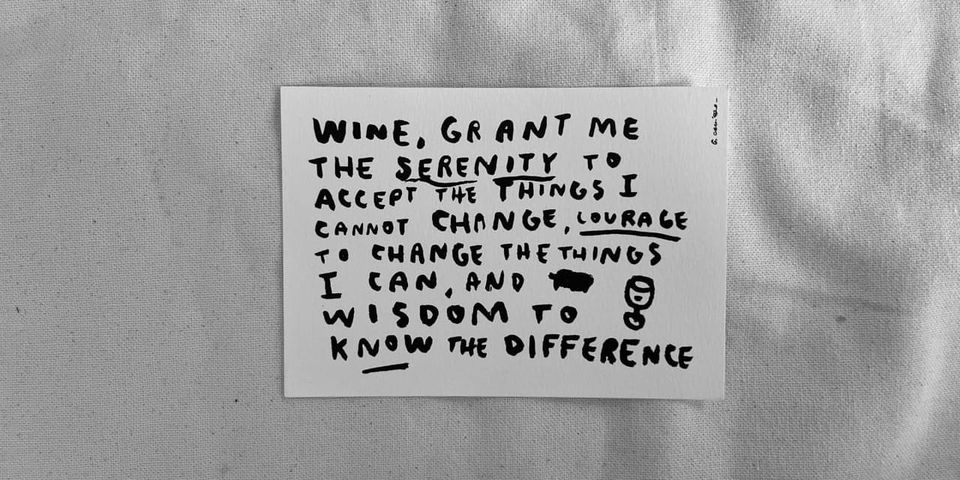 WINE, GRANT ME
THE SERENITY TO
ACCEPT THE THINGS I
CANNOT CHANGE, COURAGE
TO CHANGE THE THINGS
I CAN, AND
WISDOM TO
KNOW THE DIFFERENCE